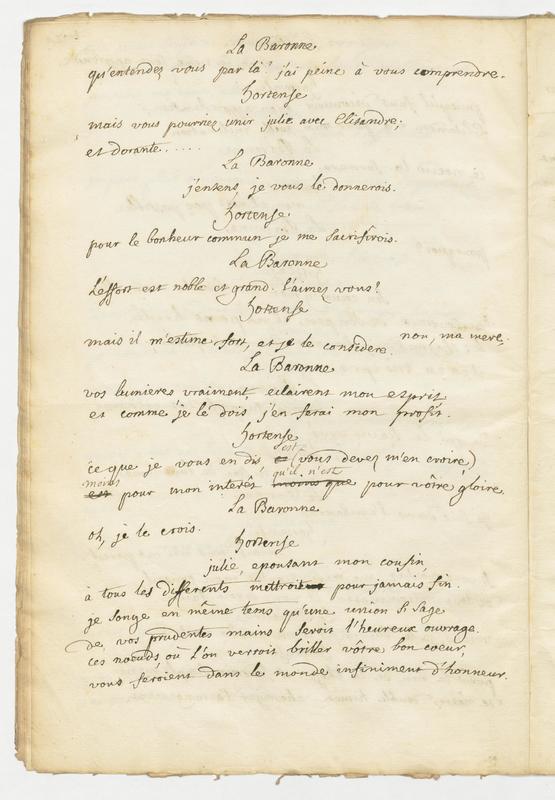 La Baronne
qu'entendez vous par là? j'ai peine à vous comprendre.
hortense
mais vous pourriez unir julie avec Elisandre;
et dorante.....
La Baronne
j'entens, je vous le donnerois.
hortense
pour le bonheur commun je me sacrifirois.
La Baronne
L'effort est noble et grand. l'aimez vous?
hortense
non, ma mere;
mais il m'estime fort, et je le considere.
La Baronne
vos lumieres vraiment, eclairent mon esprit
et comme je le dois j'en ferai mon profit.
hortense
est
ce que je vous en dis, (vous devez m'en croire,)
moins qu'il n'est
est pour mon interêt moins que pour vôtre gloire.
La Baronne
oh, je le crois.
hortense
julie, epousant mon cousin,
à tous les differents mettroit pour jamais fin.
je songe en même tems qu'une union si sage
de vos prudentes mains seroit l'heureux ouvrage.
ces noeuds, où l'on verroit briller vôtre bon coeur,
vous feroient dans le monde infiniment d'honneur.